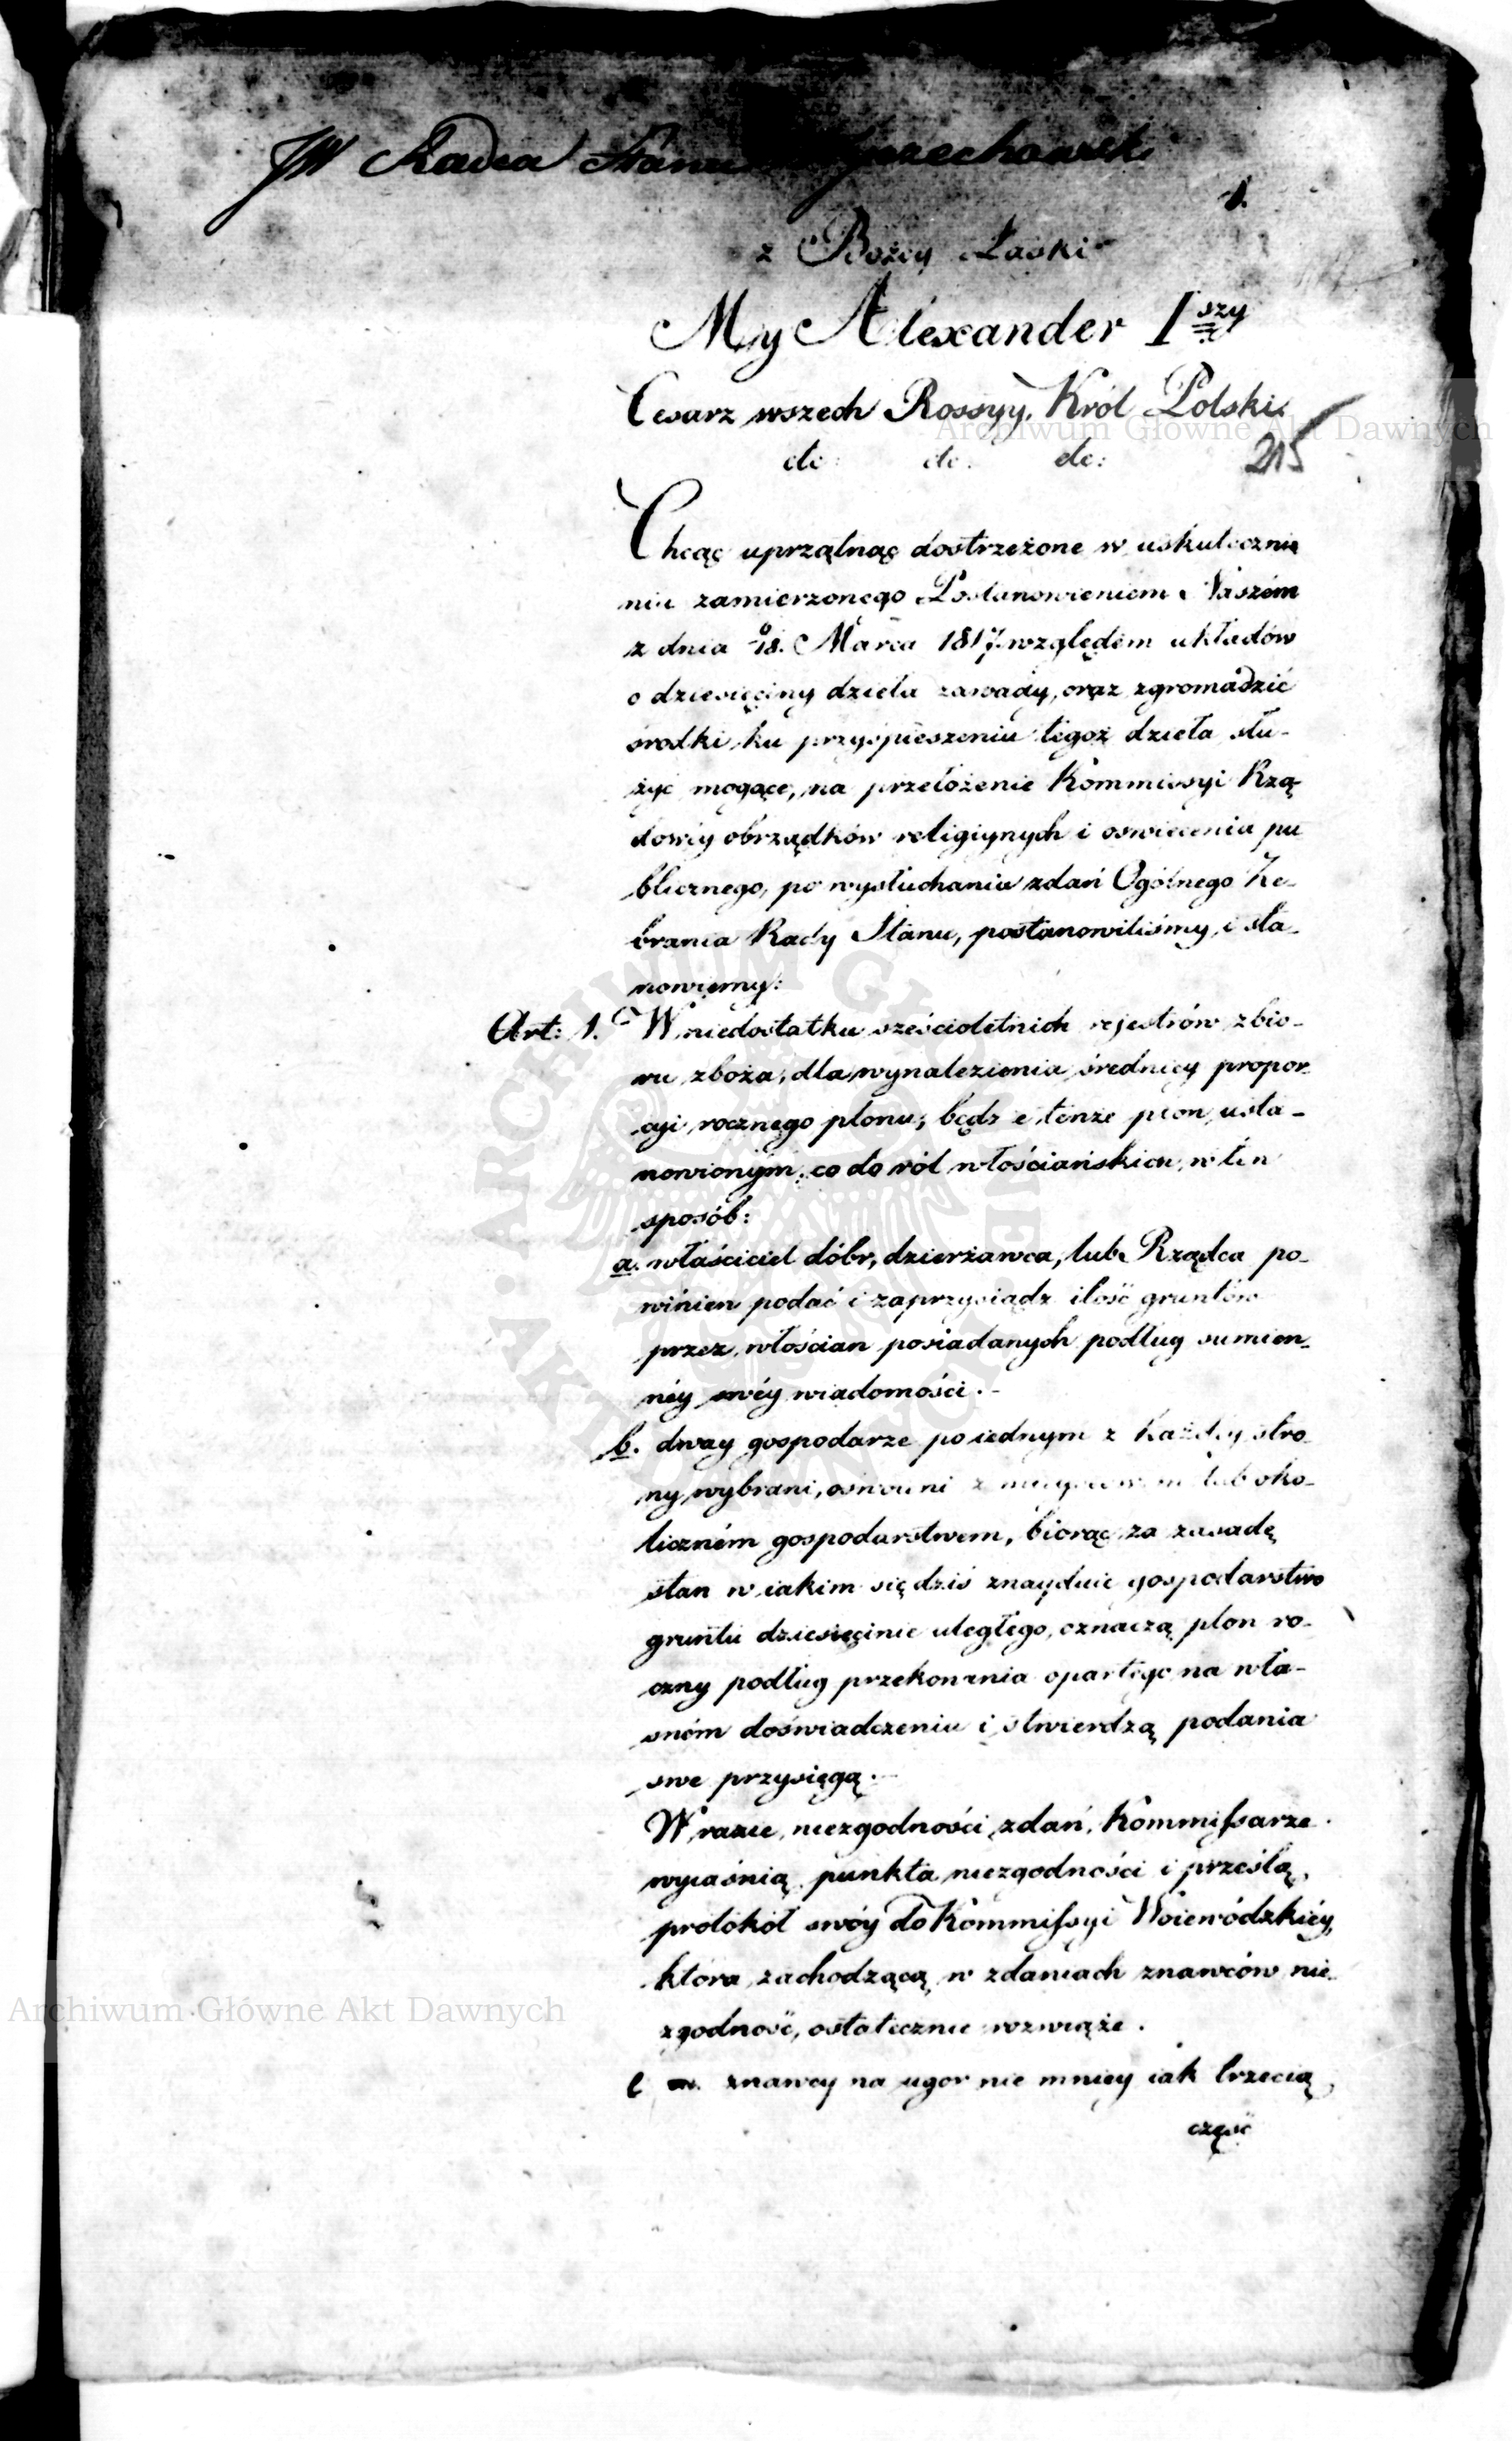 JW Radca Stanu
1.
z Bożey Łaski
My Alexander I szy
Cesarz wszech Rossyy, Król Polski.
Archiwum Główne Akt Dawnych
etc: etc: etc:
215
Chcąc uprzątnąć dostrzeżone w uskutecznie
niu zamierzonego Postanowieniem Naszém
z dnia 18. Marca 1817 względem układów
o dziesięciny dzieła zawady, oraz zgromadzić
środki ku przyśpieszeniu tegoż dzieła słu-
żyć mogące, na przełożenie Kommissyi Rzą-
dowéy obrządków religiynych i oswiecenia pu
blicznego, po wysłuchaniu zdań Ogólnego Ze-
brania Rady Stanu, postanowiliśmy i sta-
nowiemy:
Art: 1. W niedostatku sześcioletnich rejestrów zbio-
ru zboża, dla wynalezienia średniey propor-
cyi rocznego plonu, będzie tenże plon usta-
nowionym, co do ról włościańskich, w ten
sposób:
a. właściciel dóbr, dzierżawca, lub Rządca po-
winien podać i zaprzysiądz ilość gruntów
przez włościan posiadanych podług sumien-
néy swéy wiadomości.-
b. dway gospodarze po iednym z każdey stro-
ny wybrani, oswoieni z mieyscowem lub oko-
liczném gospodarstwem, biorąc za zasadę
stan w iakim się dziś znayduie gospodarstwo
gruntu dziesięcinie uległego, oznaczą plon ro-
czny podług przekonania opartego na wła-
sném doświadczeniu i stwierdzą podania
swe przysięgą.-
W razie niezgodności zdań, Kommissarze
wyiaśnią punkta niezgodności i prześlą
protokół swóy do Kommissyi Woiewódzkiéy,
która zachodzącą w zdaniach znawców nie-
zgodność, ostatecznie rozwiąże.
Archiwum Główne Akt Dawnych
c znawcy na ugor nie mniey iak trzecią
część
ARCHIWUM GŁÓWNE AKT DAWNYCH